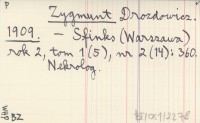 P P
Zygmunt Drozdowicz.
1909. — Sfinks (Warszawa)
rok 2, tom 1 (5), nr 2 (14): 360.
Nekrolog.
BZ